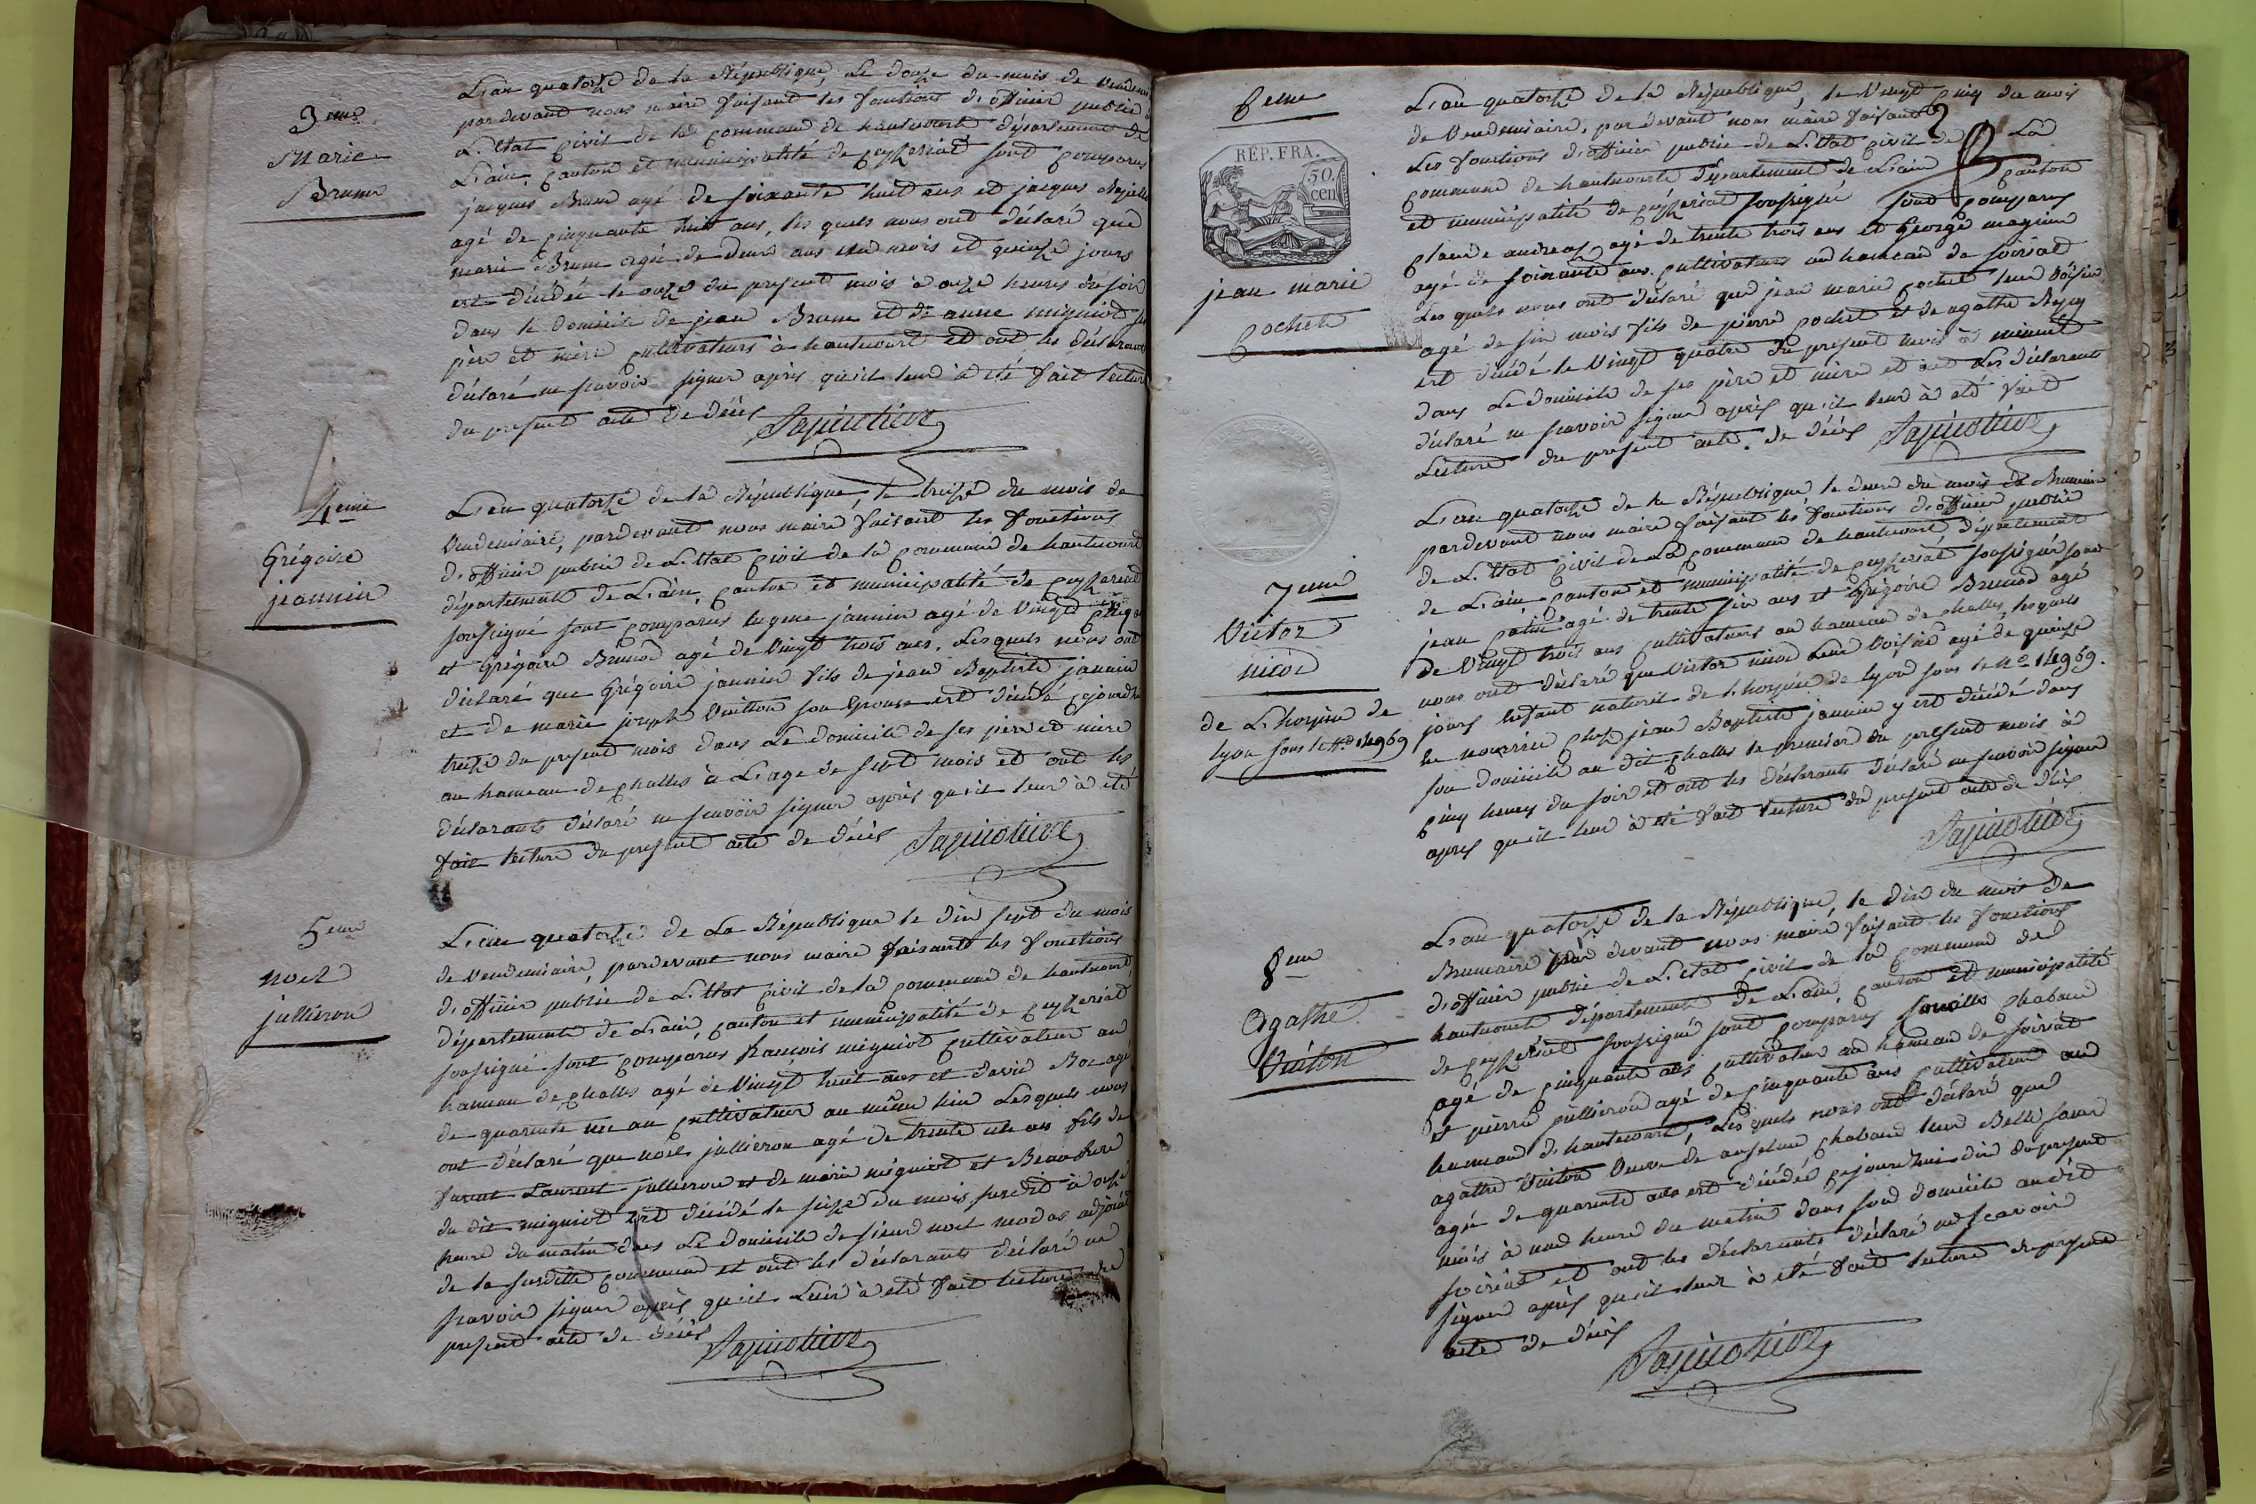 3eme
Marie
Brune
L'an quatorze de la République, Le douze du mois de
pardevant nous maire faisant les fonctions d'officier public
L'Etat civil de la commune de hautecourt département de
L'ain, canton et municipalité de ceyzeriat sont comparus
jacques Brune agé de soixante huit ans et jacques
agé de cinquante huit ans, les quels nous ont déclaré que
marie Brune agée de deux ans un mois et quinze jours
est décédée le onze du present mois à onze heures du soir
dans le domicile de jean Brune et de anne migniot
père et mère cultivateurs à hautecourt et ont les déclarants
déclaré ne scavoir signer après qu'il leur à été fait lecture
du present acte de décès
4eme
Grégoire
jeannin
L'an quatorze de la République, le treize du mois de
Vendemiaire, pardevant nous maire faisant les fonctions
d'officier public de L'Etat civil de la commune de hautecourt
département de L'ain, canton et municipalité de ceyzeriat
soussigné sont comparus eugene jannin agé de Vingt cinq
et Grégoire agé de Vingt trois ans. Lesquels nous ont
déclaré que Grégoire jannin fils de jean Baptiste jannin
et de marie joseph Vuiton son epouse est décédé cejourdhui
treize du present mois dans Le domicile de ses père et mère
au hameau de challes à L'age de sept mois et ont les
déclarants déclaré ne scavoir signer après qu'il leur à été
fait lecture du present acte de décès
5eme
noel
jullieron
L'an quatorze de La République le dix sept du mois
de Vendemiaire, pardevant nous maire faisant les fonctions
d'officier public de L'Etat civil de la commune de hautecourt,
département de L'ain, canton et municipalité de ceyzeriat
soussigné sont comparus francois migniot cultivateur au
hameau de challes agé de Vingt huit ans et david Roz agé
de quarante un an cultivateur au même lieu Lesquels nous
ont déclaré que noel jullieron agé de trente un ans fils de
Laurent jullieron et de marie migniot et Beaufrere
du dit migniot est décédé le seize du mois susdit à onze
heure du matin dans Le domicile de sieur noel modas adjoint
de la susdite commune et ont les déclarants déclaré ne
scavoir signer après qu'il Leur à été fait lecture du
present acte de décès
6eme
RÉP. FRA.
50.
cen.
jean marie
pochet
L'an quatorze de la République, le Vingt cinq du mois
de Vendemiaire, par devant nous maire faisant
Les fonctions d'officier public de L'Etat civil de La
commune de hautecourt département de L'ain canton
et municipalité de ceyzeriat soussigné sont comparus
claude andreas agé de trente trois ans et George
agé de soixante ans cultivateurs au hameau de soiriat
Les quels nous ont déclaré que jean marie pochet leur voisin
agé de six mois fils de pierre pochet et de agathe
est décédé le Vingt quatre du present mois à minuit
dans Le domicile de ses père et mère et ont Les déclarants
déclaré ne scavoir signer après qu'il leur à été fait
Lecture du present acte. de décès
7eme
Victor
nicod
de L'hospice de
lyon sous le No 14969
L'an quatorze de la République le deux du mois de Brumaire
pardevant nous maire faisant les fonctions d'officier public
de L'Etat civil de La commune de hautecourt département
de L'ain canton et municipalité de ceyzeriat soussigné sont
jean agé de trente six ans et Grégoire agé
de Vingt trois ans cultivateurs au hameau de challes, lesquels
nous ont déclaré que Victor nicod Leur Voisin agé de quinze
jours Enfant naturel de L'hospice de lyon sous le No 14969.
en nourrice chez jean Baptiste jannin y est décédé dans
son domicile au dit challes le premier du present mois à
cinq heures du soir et ont les déclarants déclaré ne scavoir signer
après qu'il leur à été fait lecture du present acte de décès
8eme
Agathe
Vuiton
L'an quatorze de la République, le dix du mois de
Brumaire par devant nous maire faisant les fonctions
d'officier public de L'etat civil de la commune de
hautecourt département de L'ain, canton et municipalité
de ceyzeriat soussigné sont comparus chaband
agé de cinquante ans cultivateur au hameau de soiriat
et pierre jullieron agé de cinquante ans cultivateur au
hameau d'hautecourt, Les quels nous ont déclaré que
agathe Vuiton Veuve de anselme chaband leur Belle soeur
agée de quarante ans est décédée cejourdhui dix du present
mois à une heure du matin dans son domicile audit
soiriat et ont les déclarants déclaré ne scavoir
signer après qu'il leur à été fait lecture du present
acte de décès